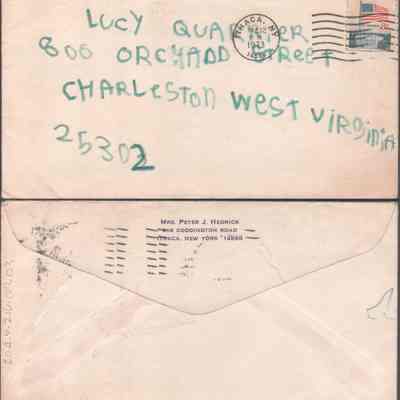 LUCY QUARRIER
800 ORCHADD STREET
CHARLESTON WEST VIRGINIA
25302
ITHACA, NY
PM
1971
MRS. PETER J. HEDRICK
CODDINGTON ROAD
ITHACA, NEW YORK 14850